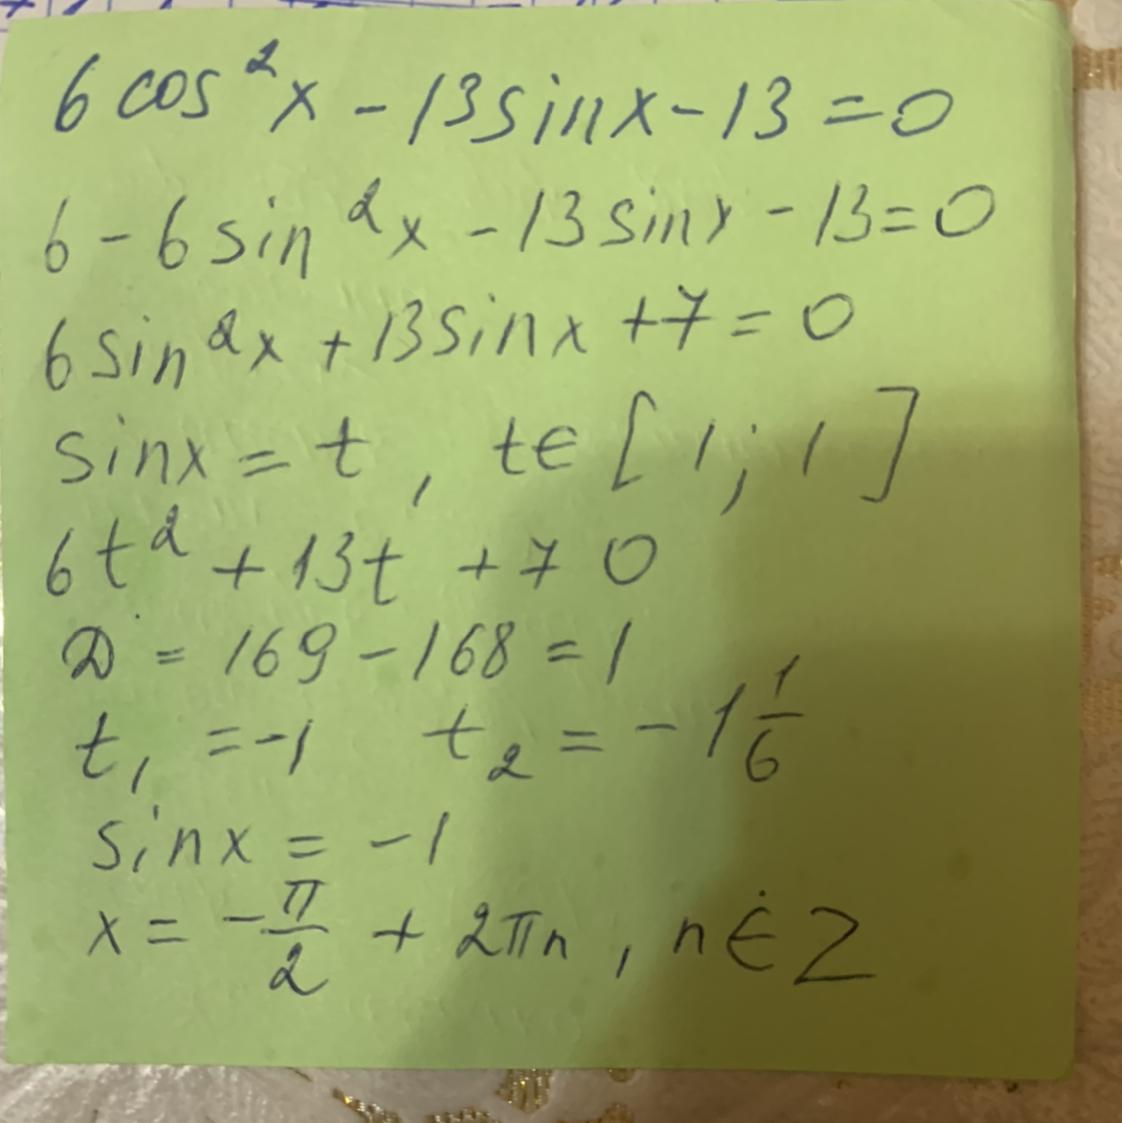 6 cos²x - 13 sinx - 13 = 0
6 - 6 sin²x - 13 sinx - 13 = 0
6 sin²x + 13 sinx + 7 = 0
sinx = t, t ∈ [ 1; 1 ]
6t² + 13t + 7 0
D = 169 - 168 = 1
t₁ = -1 t₂ = -1 1/6
sinx = -1
x = -π/2 + 2πn, n ∈ Z